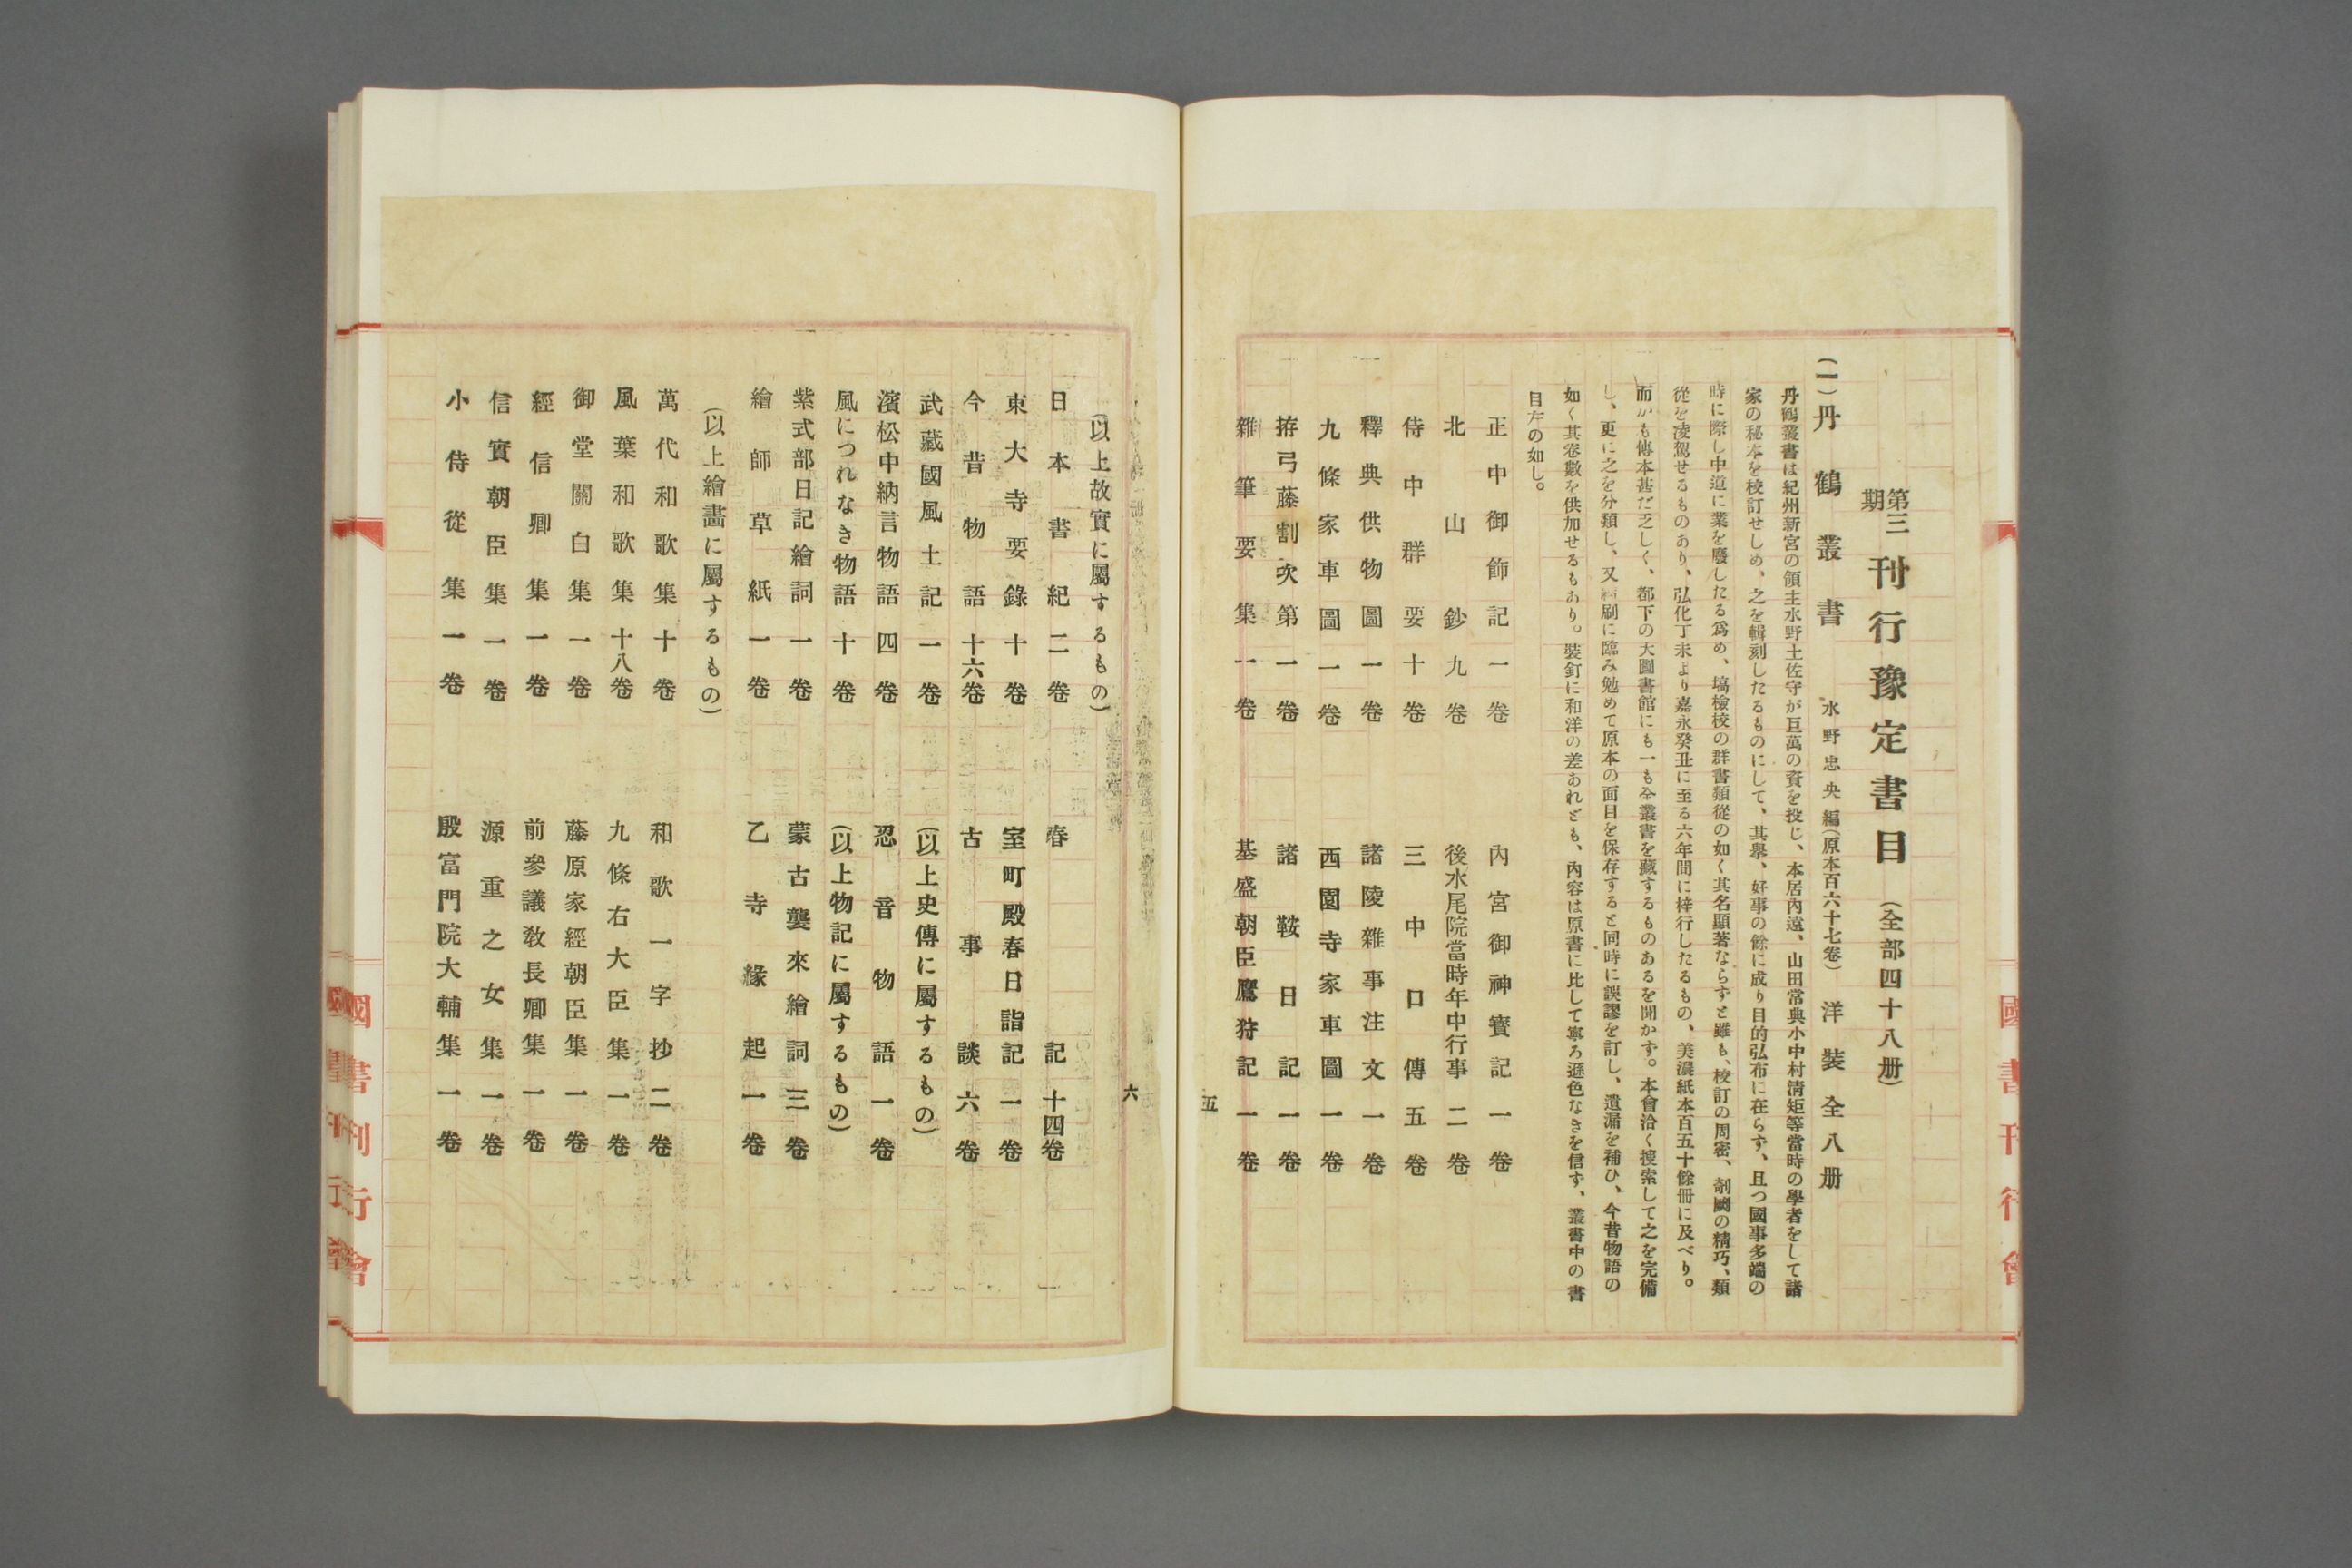 第三期刊行豫定書目（全部四十八册）
（一）丹鶴叢書　水野忠央編（原本百六十七卷）　洋裝全八册
丹鶴叢書は紀州新宮の領主水野土佐守が巨萬の資を投じ、本居內遠、山田常典小中村淸矩等當時の學者をして諸
家の秘本を校訂せしめ、之を輯刻したるものにして、其擧、好事の餘に成り目的弘布に在らず、且つ國事多端の
時に際し中道に業を廢したる爲め、塙檢校の群書類從の如く其名顯著ならずと雖も、校訂の周密、剞劂の精巧、類
從を凌駕せるものあり、弘化丁未より嘉永癸丑に至る六年間に梓行したるもの、美濃紙本百五十餘冊に及べり。
而かも傳本甚だ乏しく、都下の大圖書館にも一も全叢書を藏するものあるを聞かず。本會洽く搜索して之を完備
し、更に之を分類し、又刷に臨み勉めて原本の面目を保存すると同時に誤謬を訂し、遺漏を補ひ、今昔物語の
如く其卷數を供加せるもあり。裝釘に和洋の差あれども、內容は原書に比して寧ろ遜色なきを信ず、叢書中の書
目左の如し。
正中御飾記一卷　內宮御神寶記一卷
北山鈔九卷　後水尾院當時年中行事二卷
侍中群要十卷　三中口傳五卷
釋典供物圖一卷　諸陵雜事注文一卷
九條家車圖一卷　西園寺家車圖一卷
拵弓藤割次第一卷　諸鞍日記一卷
雜筆要集一卷　基盛朝臣鷹狩記一卷
五
六
（以上故實に屬するもの）
日本書紀二卷　春記十四卷
東大寺要錄十卷　室町殿春日詣記一卷
今昔物語十六卷　古事談六卷
武藏國風土記一卷　（以上史傳に屬するもの）
濱松中納言物語四卷　忍音物語一卷
風につれなき物語十卷　（以上物記に屬するもの）
紫式部日記繪詞一卷　蒙古襲來繪詞三卷
繪師草紙一卷　乙寺緣起一卷
（以上繪畵に屬するもの）
萬代和歌集十卷　和歌一字抄二卷
風葉和歌集十八卷　九條右大臣集一卷
御堂關白集一卷　藤原家經朝臣集一卷
經信卿集一卷　前參議敎長卿集一卷
信實朝臣集一卷　源重之女集一卷
小侍從集一卷　殷富門院大輔集一卷
國書刊行會
國書刊行會
國書刊行會